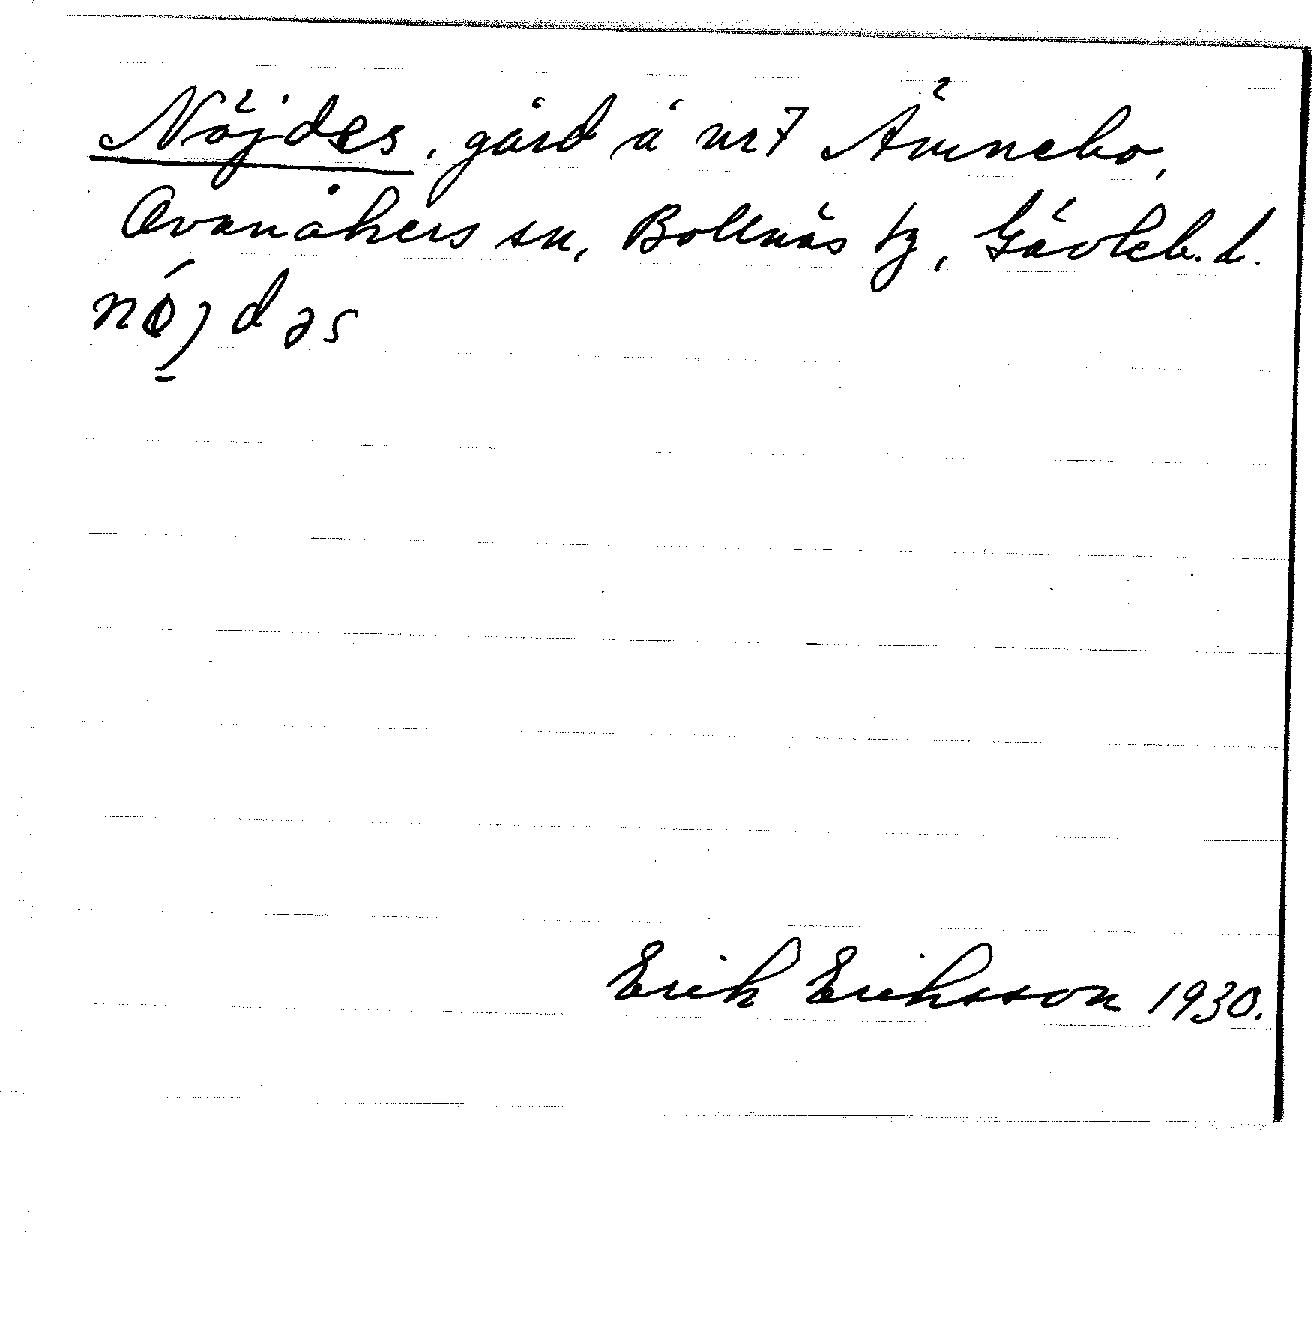 Nöjdes, gård å nr 7 Ämnebo,
Ovanåkers sn, Bollnäs tg, Gävleb. l.
nöjdəs
Erik Eriksson 1930.